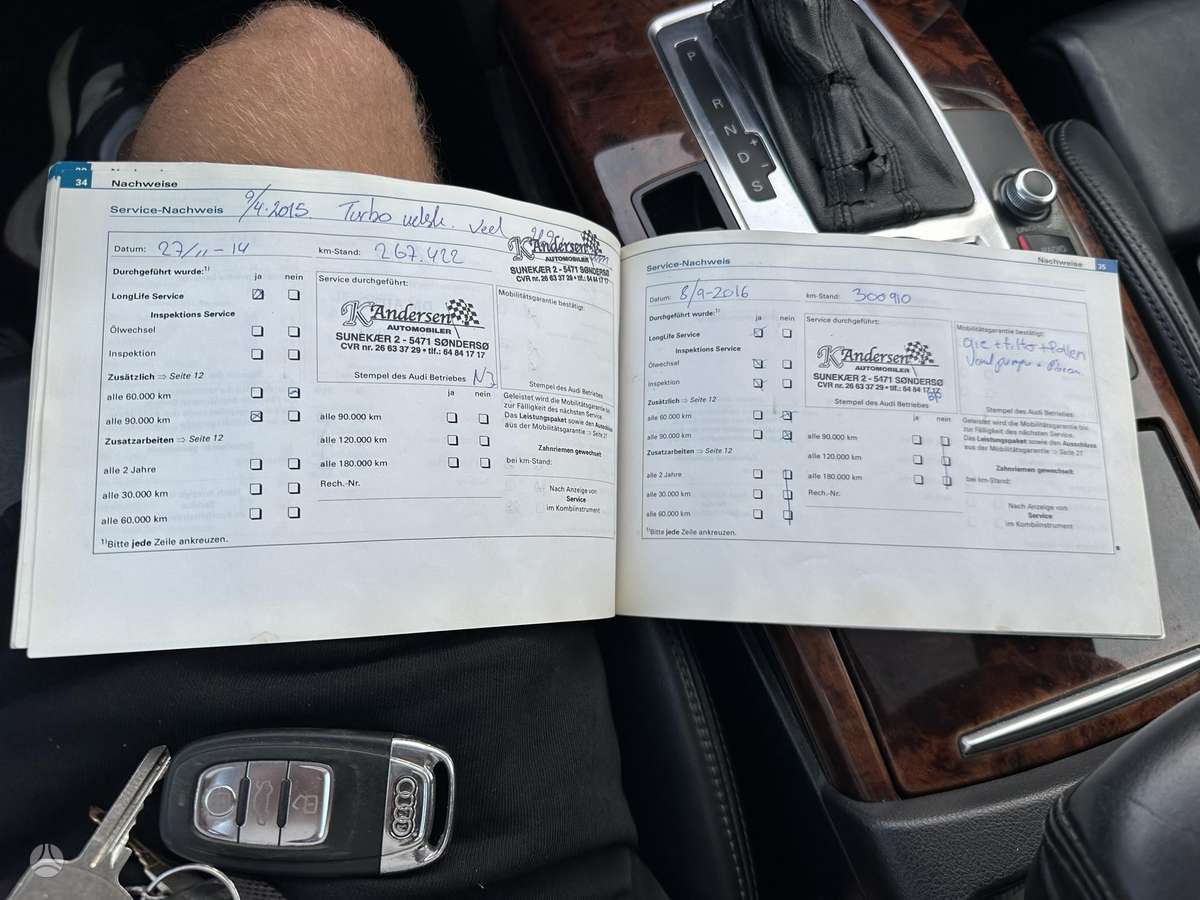 34 Nachweise
Service-Nachweis 9/4-2015. Turbo udsk. Ved
K Andersen
AUTOMOBILER
SUNEKÆR 2 - 5471 SØNDERSØ
CVR nr. 26 63 37 29 • tlf.: 64 84 17 17
Datum: 27/11-14 km-Stand: 267.422
Durchgeführt wurde:1) ja nein
LongLife Service
Inspektions Service
Ölwechsel
Inspektion
Zusätzlich ⇒ Seite 12
alle 60.000 km
alle 90.000 km
Zusatzarbeiten ⇒ Seite 12
alle 2 Jahre
alle 30.000 km
alle 60.000 km
1)Bitte jede Zeile ankreuzen.
Service durchgeführt:
K Andersen
AUTOMOBILER
SUNEKÆR 2 - 5471 SØNDERSØ
CVR nr. 26 63 37 29 • tlf.: 64 84 17 17
Stempel des Audi Betriebes
ja nein
alle 90.000 km
alle 120.000 km
alle 180.000 km
Rech.-Nr.
Mobilitätsgarantie bestätigt:
Stempel des Audi Betriebes
Geleistet wird die Mobilitätsgarantie bis
zur Fälligkeit des nächsten Service.
Das Leistungspaket sowie den Ausschluss
aus der Mobilitätsgarantie ⇒ Seite 21
Zahnriemen gewechselt
bei km-Stand:
Nach Anzeige von
Service
im Kombiinstrument
Nachweise 35
Service-Nachweis
Datum: 8/9-2016 km-Stand: 300910
Durchgeführt wurde:1) ja nein
LongLife Service
Inspektions Service
Ölwechsel
Inspektion
Zusätzlich ⇒ Seite 12
alle 60.000 km
alle 90.000 km
Zusatzarbeiten ⇒ Seite 12
alle 2 Jahre
alle 30.000 km
alle 60.000 km
1)Bitte jede Zeile ankreuzen.
Service durchgeführt:
K Andersen
AUTOMOBILER
SUNEKÆR 2 - 5471 SØNDERSØ
CVR nr. 26 63 37 29 • tlf.: 64 84 17 17
Stempel des Audi Betriebes
ja nein
alle 90.000 km
alle 120.000 km
alle 180.000 km
Rech.-Nr.
Mobilitätsgarantie bestätigt:
Olie + filter + Pollen
Vandpumpe +
Stempel des Audi Betriebes
Geleistet wird die Mobilitätsgarantie bis
zur Fälligkeit des nächsten Service.
Das Leistungspaket sowie den Ausschluss
aus der Mobilitätsgarantie ⇒ Seite 21
Zahnriemen gewechselt
bei km-Stand:
Nach Anzeige von
Service
im Kombiinstrument
P
R
N
D
S
+
-